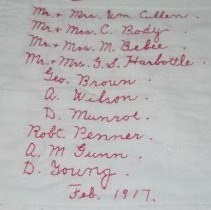 Mr. & Mrs. Wm Cullen.
Mr. & Mrs. C. Body.
Mr. & Mrs. M. Bebie.
Mr. & Mrs. G. S. Harbottle.
Geo. Brown.
A. Wilson.
D. Munroe.
Robt. Penner.
A. M Gunn.
D. Young.
Feb. 1917.